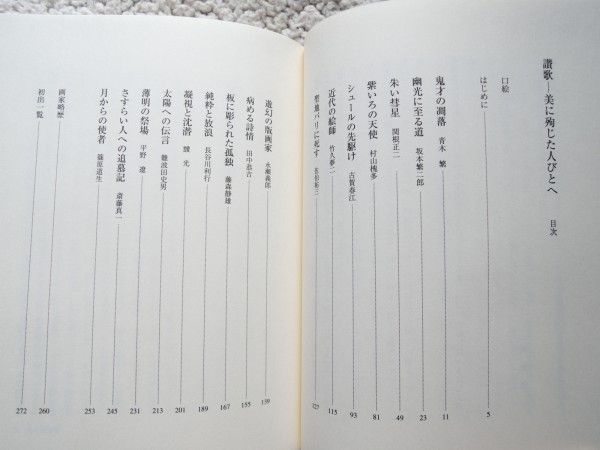 讃歌―美に殉じた人びとへ 目次
口絵
はじめに 5
鬼才の凋落 青木 繁 11
幽光に至る道 坂本繁二郎 23
朱い彗星 関根正二 49
紫いろの天使 村山槐多 81
シュールの先駆け 古賀春江 93
近代の絵師 竹久夢二 115
聖地パリに死す 佐伯祐三 127
遊幻の版画家 永瀬義郎 139
病める詩情 田中恭吉 155
板に彫られた孤独 藤森静雄 167
純粋と放浪 長谷川利行 189
凝視と沈潜 靉光 201
太陽への伝言 難波田史男 213
薄明の祭場 平野 遼 231
さすらい人への追墓記 斎藤真一 245
月からの使者 篠原道生 253
画家略歴 260
初出一覧 272